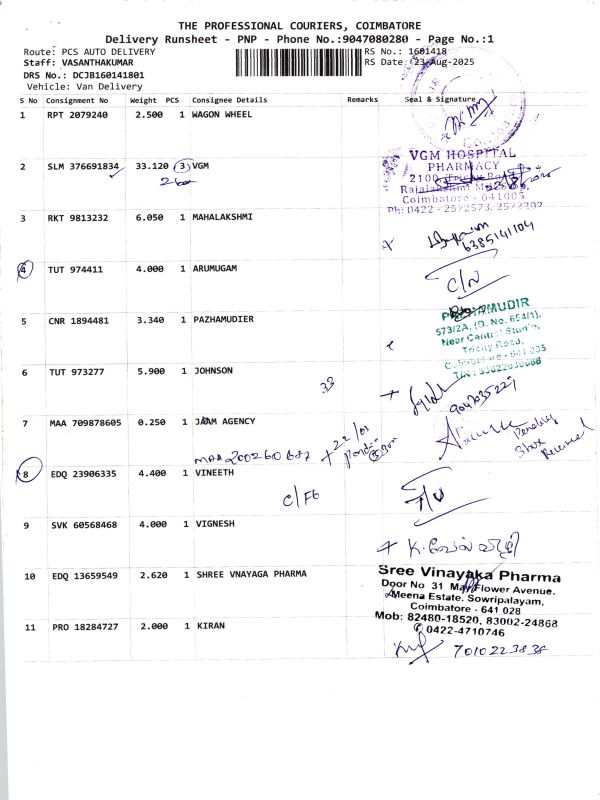 THE PROFESSIONAL COURIERS, COIMBATORE
Delivery Runsheet - PNP - Phone No.:9047080280 - Page No.:1
Route: PCS AUTO DELIVERY RS No.: 1601418
Staff: VASANTHAKUMAR RS Date: 23-Aug-2025
DRS No.: DCJB160141801
Vehicle: Van Delivery
S No Consignment No Weight PCS Consignee Details Remarks Seal & Signature
1 RPT 2079240 2.500 1 WAGON WHEEL
2 SLM 376691834 33.120 3 VGM
2 box
VGM HOSPITAL
PHARMACY
2100, Trichy Road
Rajalakshmi Mills
Coimbatore - 641005.
Ph: 0422 - 2572573, 2573202
3 RKT 9813232 6.050 1 MAHALAKSHMI
6385141104
4 TUT 974411 4.000 1 ARUMUGAM
C/N
5 CNR 1894481 3.340 1 PAZHAMUDIER
573/2A, (D. No. 654/1),
Near Central Studio,
Trichy Road,
6 TUT 973277 5.900 1 JOHNSON
33
9047035227
7 MAA 709878605 0.250 1 JAAM AGENCY
MAA 200260687
Pending
3 box
Received
8 EDQ 23906335 4.400 1 VINEETH
C/F6
9 SVK 60568468 4.000 1 VIGNESH
10 EDQ 13659549 2.620 1 SHREE VNAYAGA PHARMA
Sree Vinayaka Pharma
Door No 31 May Flower Avenue.
Meena Estate. Sowripalayam,
Coimbatore - 641 028
Mob: 82480-18520, 83002-24868
0422-4710746
11 PRO 18284727 2.000 1 KIRAN
7010223838